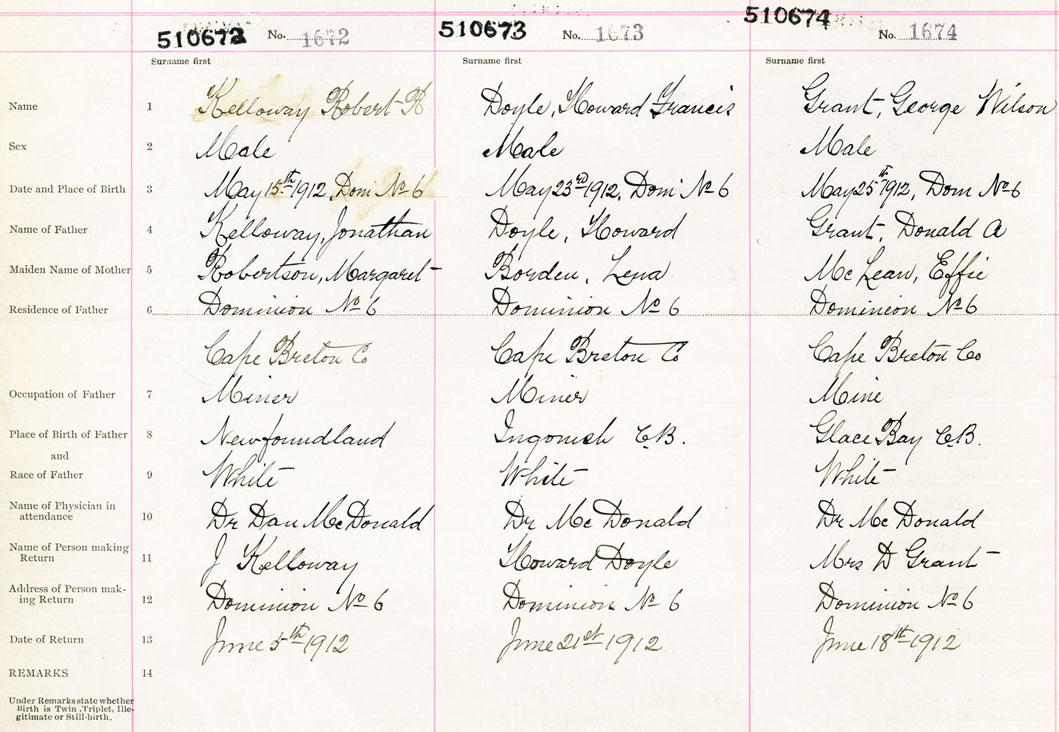 510672 No. 1672 510673 No. 1673 510674 No. 1674
Surname first Surname first Surname first
Name 1 Kelloway Robert R Doyle, Howard Francis Grant, George Wilson
Sex 2 Male Male Male
Date and Place of Birth 3 May 15th 1912, Dom No 6 May 23rd 1912, Dom No 6 May 25th 1912, Dom No 6
Name of Father 4 Kelloway, Jonathan Doyle, Howard Grant, Donald A
Maiden Name of Mother 5 Robertson, Margaret Borden, Lena McLean, Effie
Residence of Father 6 Dominion No 6 Dominion No 6 Dominion No 6
Cape Breton Co Cape Breton Co Cape Breton Co
Occupation of Father 7 Miner Miner Mine
Place of Birth of Father 8 Newfoundland Ingonish C.B. Glace Bay C.B.
and
Race of Father 9 White White White
Name of Physician in
attendance 10 Dr Dan McDonald Dr McDonald Dr McDonald
Name of Person making
Return 11 J Kelloway Howard Doyle Mrs D Grant
Address of Person mak-
ing Return 12 Dominion No 6 Dominion No 6 Dominion No 6
Date of Return 13 June 5th 1912 June 21st 1912 June 18th 1912
REMARKS 14
Under Remarks state whether
Birth is Twin, Triplet, Ille-
gitimate or Still-birth.